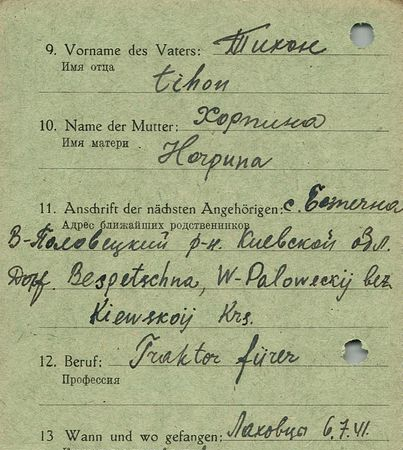 9. Vorname des Vaters: Тихон
Имя отца
tihon
10. Name der Mutter: Хорпина
Имя матери
Horpina
11. Anschrift der nächsten Angehörigen: с.
Адрес ближайших родственников
В-Половецкий р-н. Киевской обл.
Dorf. Bespetschna, W-Paloweckij bez
Kiewskoij Krs.
12. Beruf: Traktor fürer
Профессия
13 Wann und wo gefangen: Лаховцы 6.7.41.